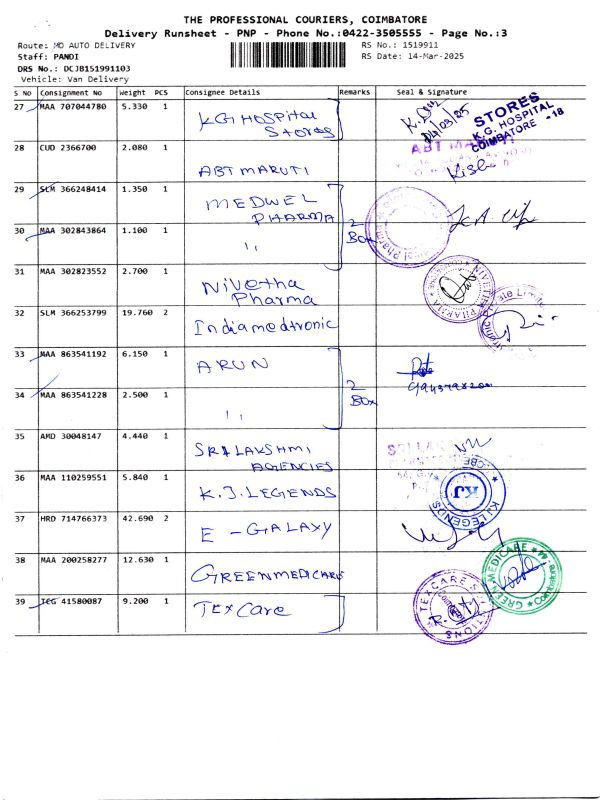 THE PROFESSIONAL COURIERS, COIMBATORE
Delivery Runsheet - PNP - Phone No.:0422-3505555 - Page No.:3
Route: MO AUTO DELIVERY
RS No.: 1519911
Staff: PANDI
RS Date: 14-Mar-2025
DRS No.: DCJB151991103
Vehicle: Van Delivery
S No Consignment No Weight PCS Consignee Details Remarks Seal & Signature
27 MAA 707044780 5.330 1 K.G. HOSPITAL
STORES
STORES
K.G. HOSPITAL
COIMBATORE -18
28 CUD 2366700 2.080 1 ABT MARUTI
29 SLM 366248414 1.350 1 MEDWEL
PHARMA
2
Box
30 MAA 302843864 1.100 1 ''
31 MAA 302823552 2.700 1 Nivetha
Pharma
NIVETHA PHARMA
32 SLM 366253799 19.760 2 Indiamedtronic
33 MAA 863541192 6.150 1 ARUN
2
Box
34 MAA 863541228 2.500 1 ''
35 AMD 30048147 4.440 1 SRI LAKSHMI
AGENCIES
36 MAA 110259551 5.840 1 K.J. LEGENDS
KJ
KJ LEGENDS
37 HRD 714766373 42.690 2 E - GALAXY
38 MAA 200258277 12.630 1 GREENMEDICARE
GREEN MEDICARE
39 TCG 41580087 9.200 1 TEXCare
TEXCARE